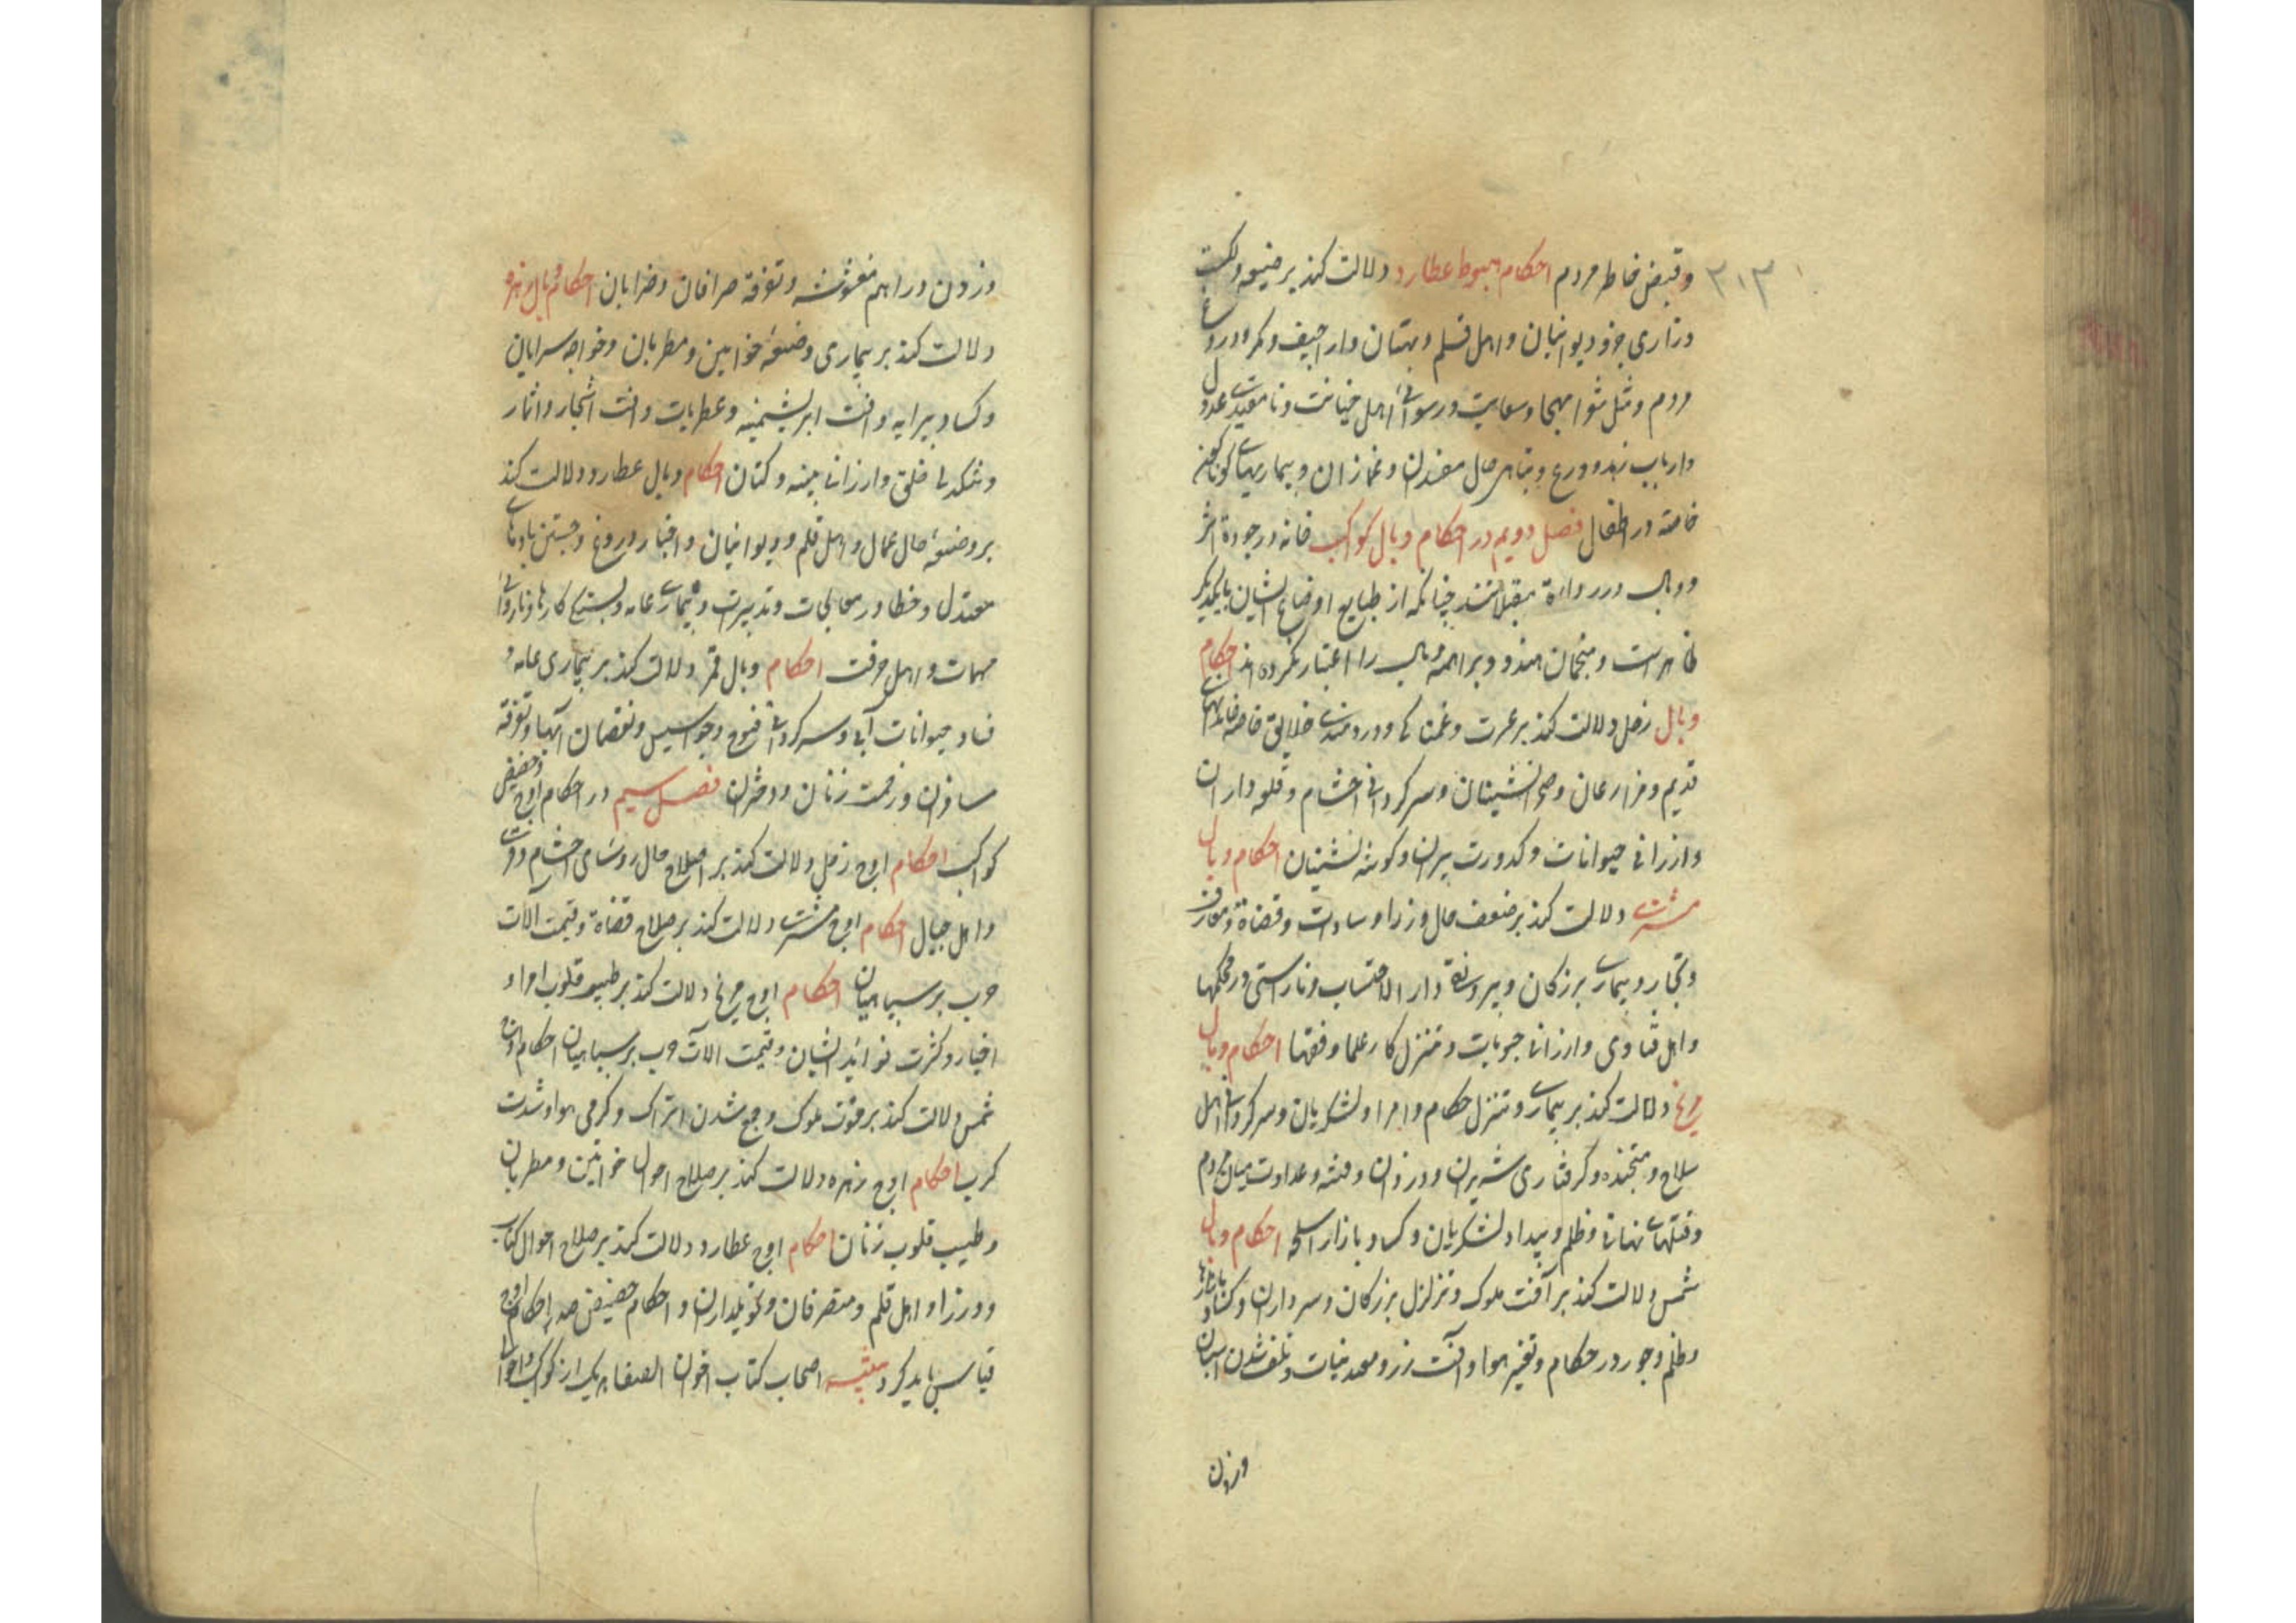 ۳۱۳
وقبض خاطر مردم احکام هبوط عطارد دلالت کند بر ضیعه و نکبت
وزاری جزو دیوانیان و اهل قلم و بهتان و اراجیف و مکر و دروغ
مردم و مثل شوا مهجا و سعایت و رسوائی اهل خیانت و نامقیدی عدول
وارباب زهد و ورع و تباهی حال مفسدان و غمازان و بیماریهای کوناکون
خاصه در اطفال فصل دویم در احکام وبال کواکب خانه در جودة اثر
ووبال در رداءة مقبلا‌نند چنانکه از طبایع اوضاع ایشان بایکدیکر
ظاهر است و منجمان هند و براهمه وبال را اعتبار نکرده اند احکام
وبال زحل دلالت کند بر عسرت و غمناکی و دردمندی خلایق خاصه خاندانهای
قدیم و مزارعان و صحرانشینان و سرکردانی احشام و قلعه داران
وارزانی حیوانات و کدورت پیران و کوشه نشینان احکام وبال
مشتری دلالت کند بر ضعف حال وزرا و سادات و قضاة و معارف
وتجار و بیماری بزرکان و بیرونقی دار الاحتساب و ناراستی در محکمها
واهل فتاوی و ارزانی حبوبات و تنزل کار علما و فقها احکام وبال
مریخ دلالت کند بر بیماری و تنزل حکام و امرا و لشکریان و سرکردانی اهل
سلاح و متجنده و کرفتاری شریران و دزدان و فتنه و عداوت میان مردم
وفتنهای نهانی و ظلم و بیداد لشکریان و کساد بازار اسلحه احکام وبال
شمس دلالت کند بر آفت ملوک و تزلزل بزرکان و سرداران و کساد بازارها
وظلم و جور در حکام و تغیر هوا و آفت زر و معدنیات و تلف شدن اسبان
وزدن
وزدن دراهم مغشوشه و تفرقه صرافان و ضرابان احکام وبال زهره
دلالت کند بر بیماری و ضیعهٔ خواتین و مطربان و خواجه سرایان
وکساد پیرایه و آفت ابریشمینه و عطریات و آفت اشجار و اثمار
وتنکدلی خلق و ارزانی پنبه و کتان احکام وبال عطارد دلالت کند
بر و ضیعهٔ حال عمال و اهل قلم و دیوانیان و اخبار دروغ و جستن بادهای
معتدل و خطا در معالجات و تدبیرات و بیماری عامه و بستکی کارها و ناروائی
مهمات و اهل حرفت احکام وبال قمر دلالت کند بر بیماری عامه و
فساد حیوانات آبی و سرکردانی فیوج و جواسیس و نقصان آبها و تفرقه
مسافران و زحمت زنان و دختران فصل سیم در احکام اوج و حضیض
کواکب احکام اوج زحل دلالت کند بر اصلاح حال رؤسای احشام و قری
واهل جبال احکام اوج مشتری دلالت کند بر صلاح قضاة و قیمت آلات
حرب بر سپاهیان احکام اوج مریخ دلالت کند بر طیب قلوب امرا و
اخیار و کثرت فواید ایشان و قیمت آلات حرب بر سپاهیان احکام اوج
شمس دلالت کند بر قوت ملوک و جمع شدن اتراک و کرمی هوا و شدت
کرب احکام اوج زهره دلالت کند بر صلاح احوال خواتین و مطربان
وطیب قلوب زنان احکام اوج عطارد دلالت کند بر صلاح احوال کتاب
ووزرا و اهل قلم و متصرفان و تحویلداران و احکام حضیض ضد احکام اوج
قیاس باید کرد تنبیه اصحاب کتاب اخوان الصفا هریک از کواکب و احوال